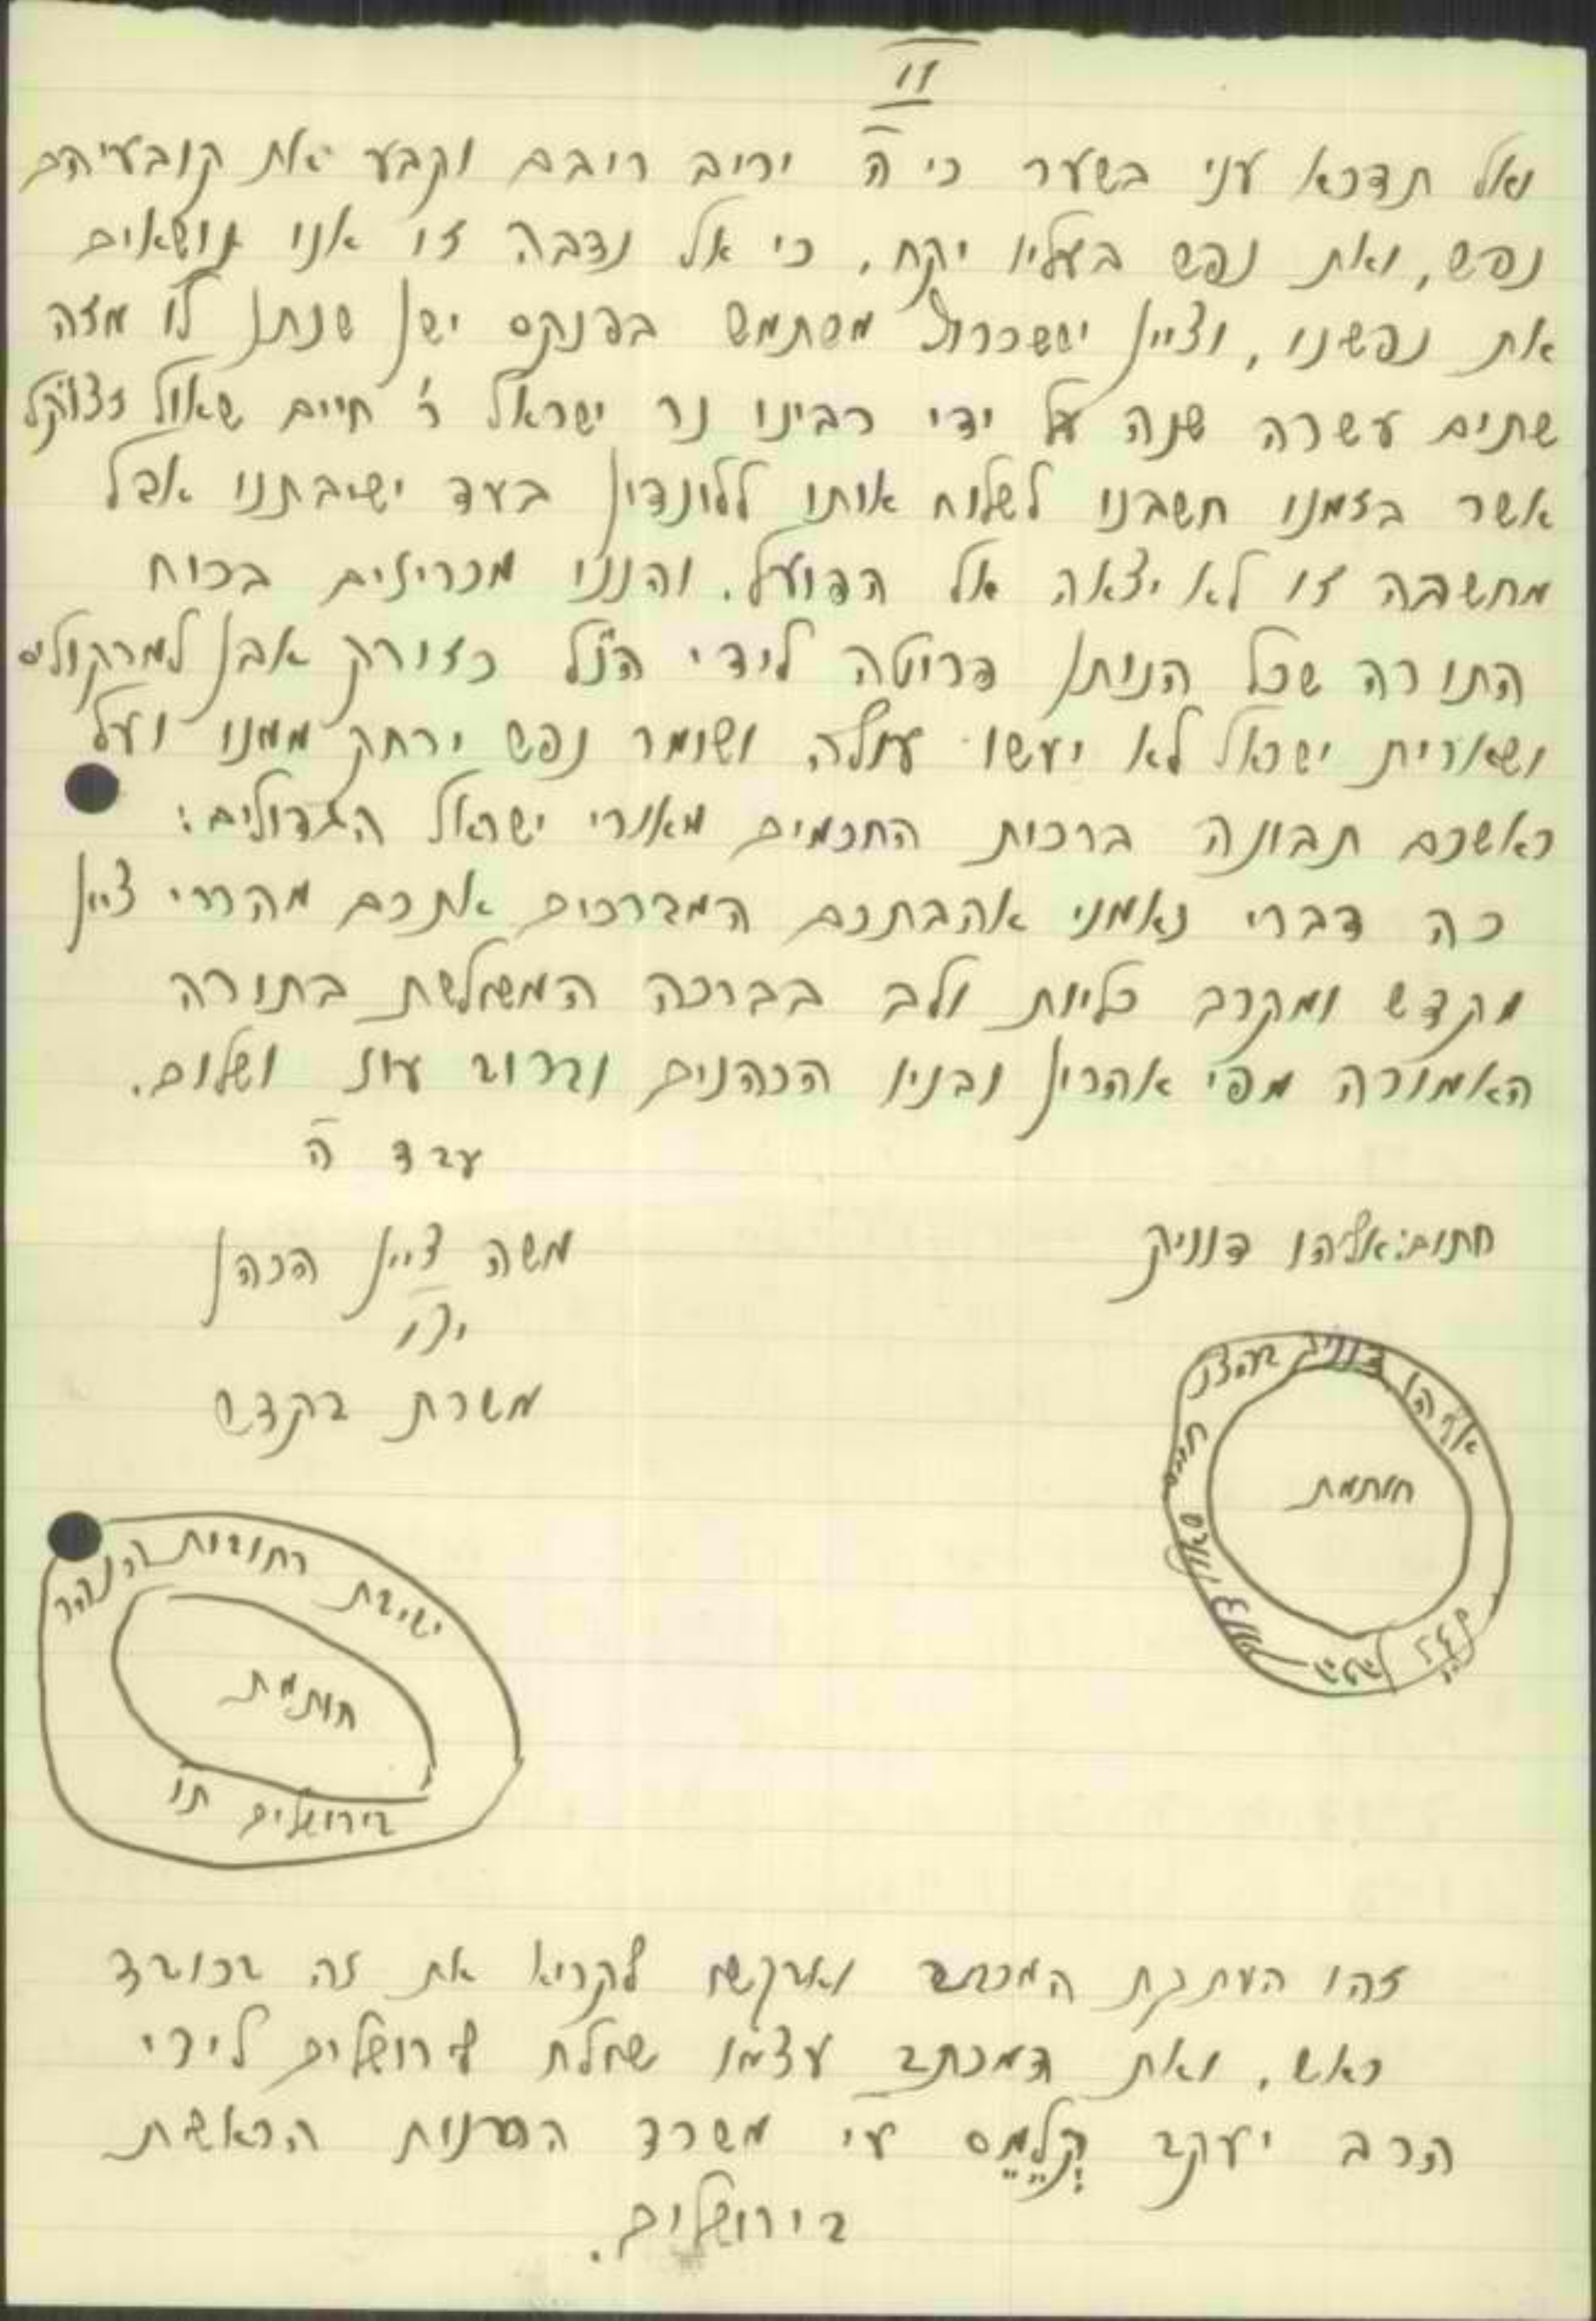 II
ואל תדכא עני בשער כי ה' יריב ריבם וקבע את קובעיהם
נפש, ואת נפש בעליו יקח, כי אל נדבה זו אנו נושאים
את נפשנו, וציין יששכרוף משתמש בפנקס ישן שנתן לו מזה
שתים עשרה שנה על ידי רבינו נר ישראל ר' חיים שאול זצוק"ל
אשר בזמנו חשבנו לשלוח אותו ללונדון בעד ישיבתנו אבל
מחשבה זו לא יצאה אל הפועל. והננו מכריזים בכוח
התורה שכל הנותן פרוטה לידי הנ"ל כזורק אבן למרקוליס
ושארית ישראל לא יעשו עולה ושומר נפש ירחק ממנו ועל
ראשכם תבונה ברכות החכמים מאורי ישראל הגדולים:
כה דברי נאמני אהבתכם המברכים אתכם מהררי ציון
מקדש ומקרב כליות ולב בברכה המשולשת בתורה
האמורה מפי אהרון ובניו הכהנים וברוב עוז ושלום.
עבד ה'
חתום: אליהו דווניק
משה ציין הכהן
יצ"ו
משרת בקדש
אליהו דוויק הכהן חיים
חותמת
ישיבת רחובות הנהר
חותמת
בירושלים ת"ו
זהו העתקת המכתב ואבקש לקרוא את זה בכובד
ראש, ואת המכתב עצמו שולח לירושלים לידי
הרב יעקב קלמס ע"י משרד הרבנות הראשית
בירושלים.